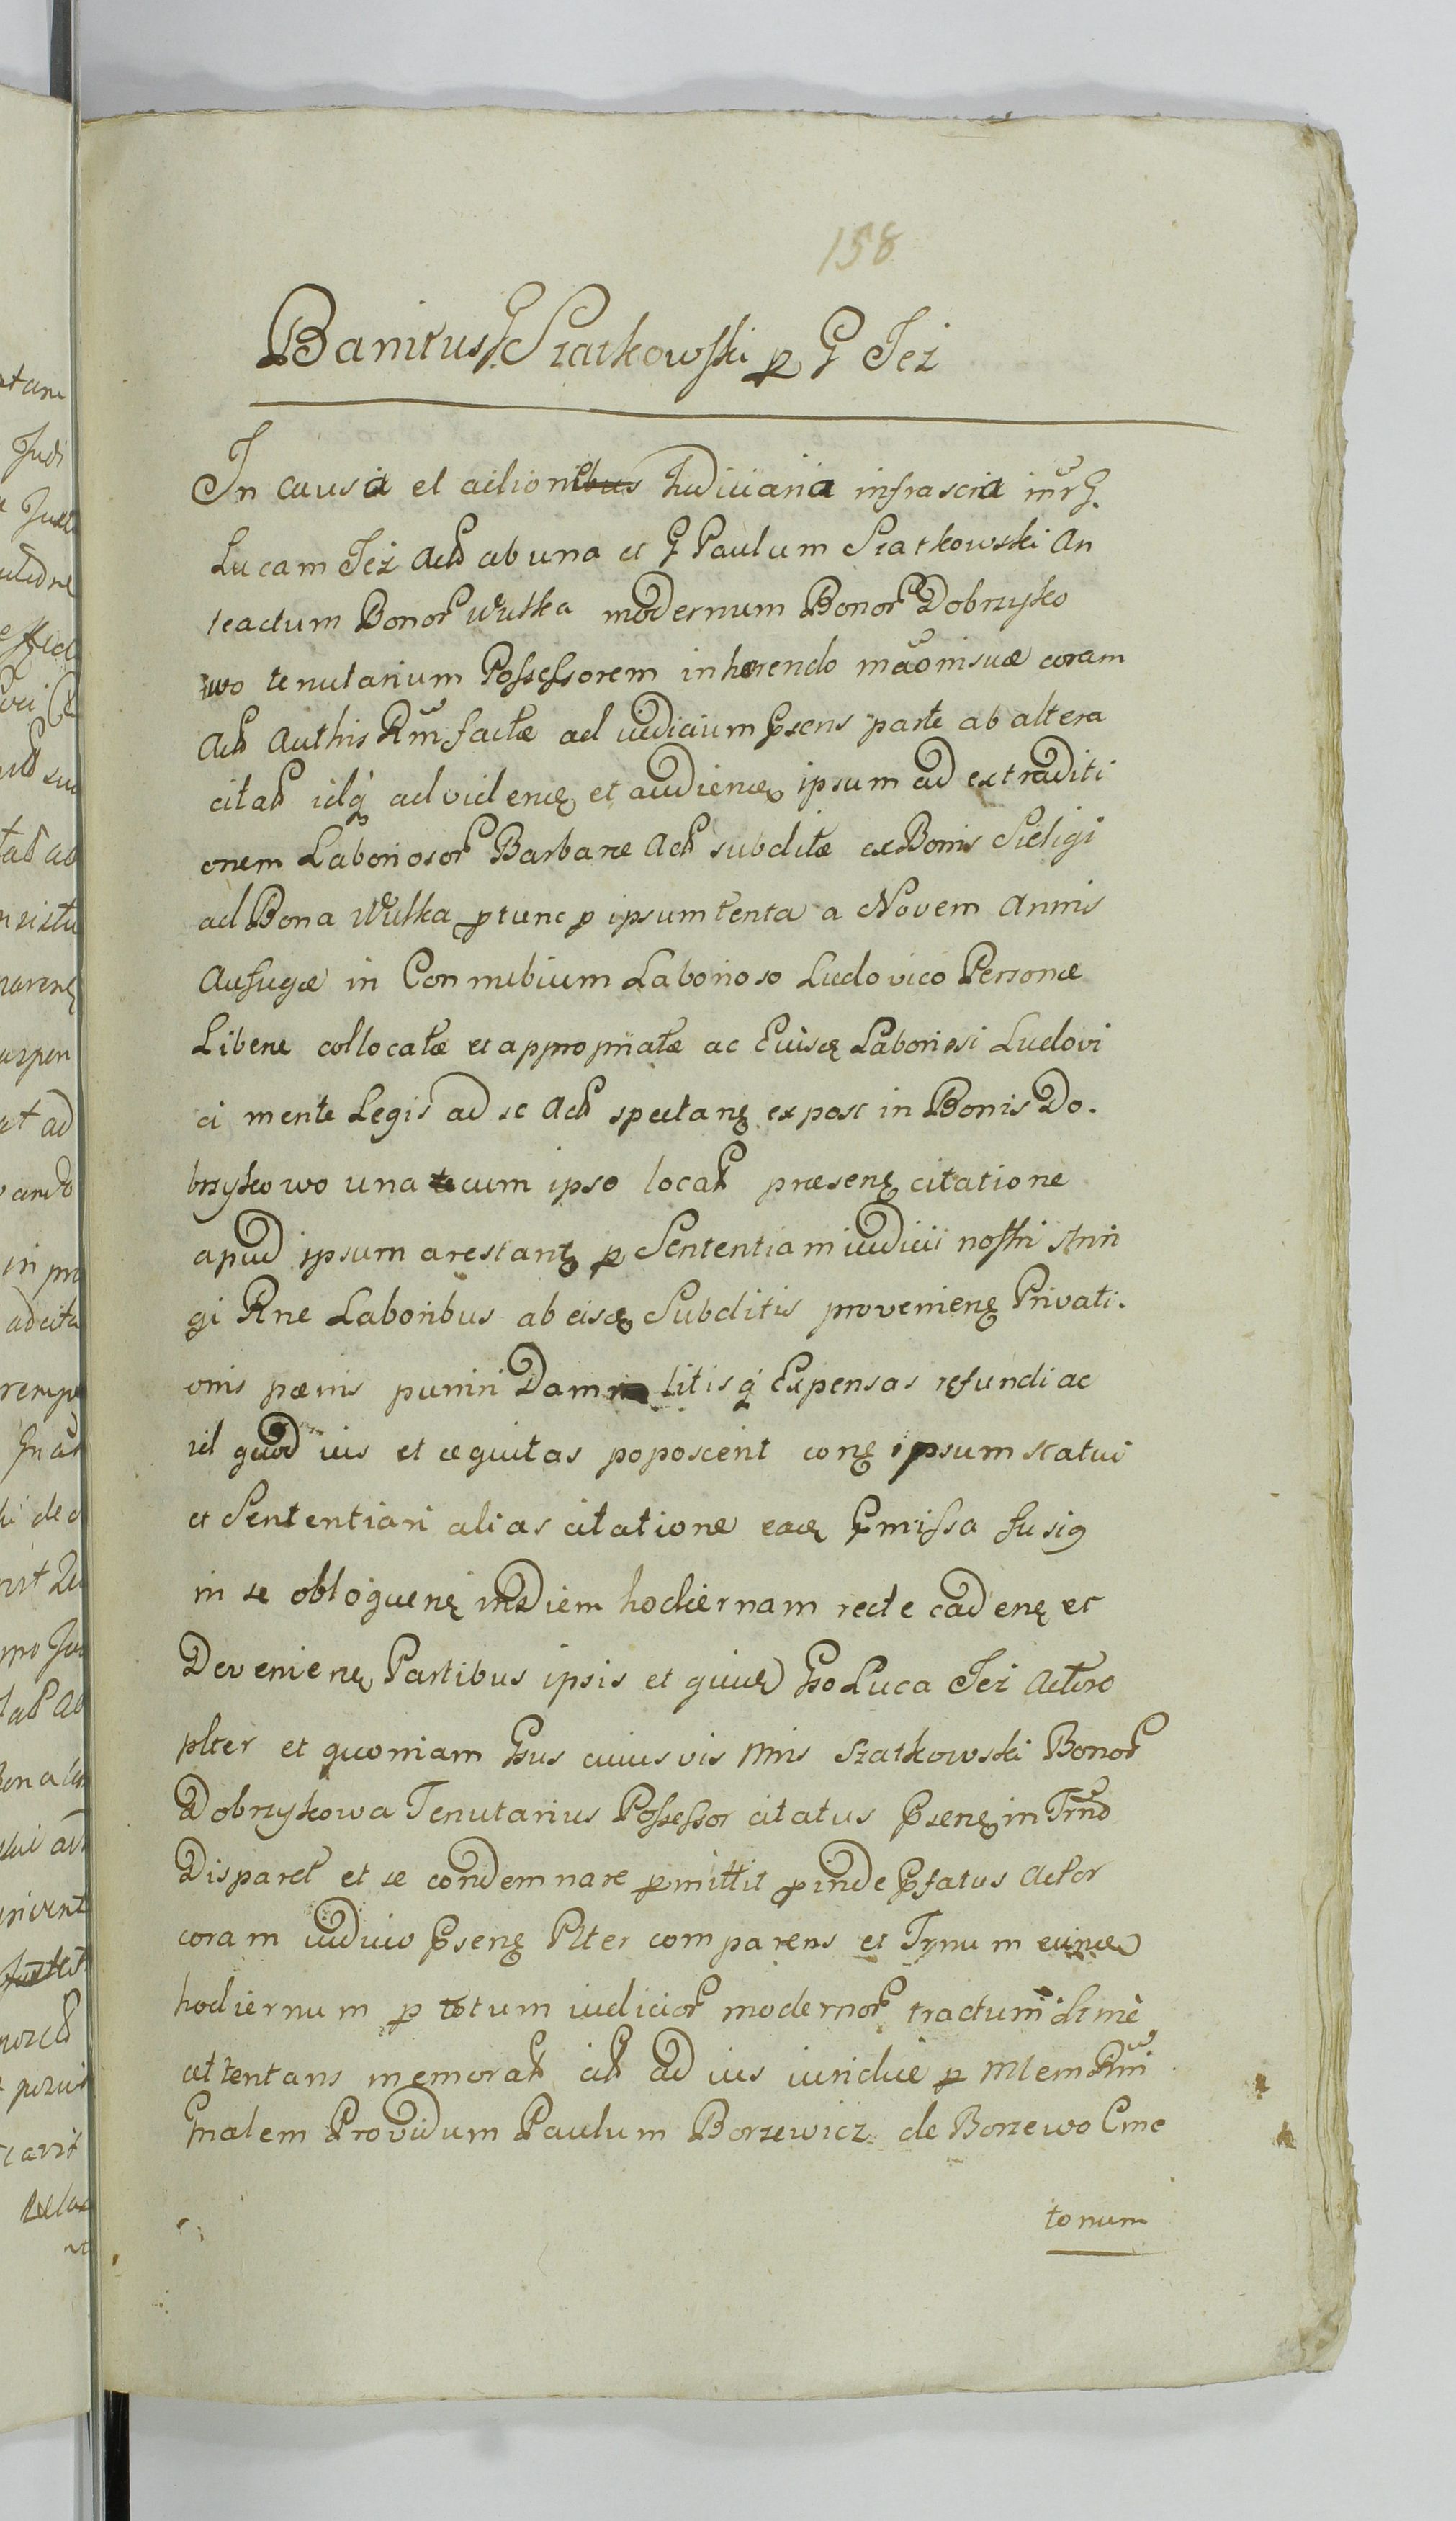 158
Banitus G Szatkowski p G Jeż
In causa et actioni Judiciaria infrascria intr G.
Lucam Jeż Actt ab una et G Paulum Szatkowski An
teactum Bonor Wulka modernum Bonor Dobrzyko
wo tenutarium Possessorem inhærendo maonisuæ coram
Actt Authis Rni factæ ad iudicium Psens parte ab altera
citatt idq ad videnę et audienę ipsum ad extraditi
onem Laboriosor Barbaræ Actt subditæ ex Bonis Sieligi
ad Bona Wulka ptunc p ipsum tenta a Novem Annis
Aufugæ in Connubium Laborioso Ludovico Personæ
Liberæ collocatæ et appropriatæ ac Euisę Laboriosi Ludovi
ci mente Legis ad se Actt spectanę ex post in Bonis Do.
brzykowo una cum ipso locatt præsenę citatione
apud ipsum arestantę p Sententiam iudicii nostri strin
gi Rne Laboribus ab eisę Subditis provenienę Privati.
onis pænis puniri Damna litisq Expensas refundi ac
id quod ius et æquitas poposcerit conę ipsum statui
et Sententiari alias citatione eaę Pmissa fusi9
in se obloquenę in Diem hodiernam recte cadenę et
Devenienę Partibus ipsis et quiuę Gso Luca Jeż Actore
plter et quoniam Gsus cuiusvis Mnis Szatkowski Bonor
Dobrzykowa Tenutarius Possessor citatus Psenę in Trno
Disparet et se condemnare pmittit pinde Pfatus Actor
coram iudicio Psenę Plter comparens et Trnum eunę
hodiernum p totum iudicior modernor tractum
attentans memoratt citt ad ius iuridice p Mlem Rni
Gnalem Providum Paulum Borzewicz de Borzewo Cme
tonum